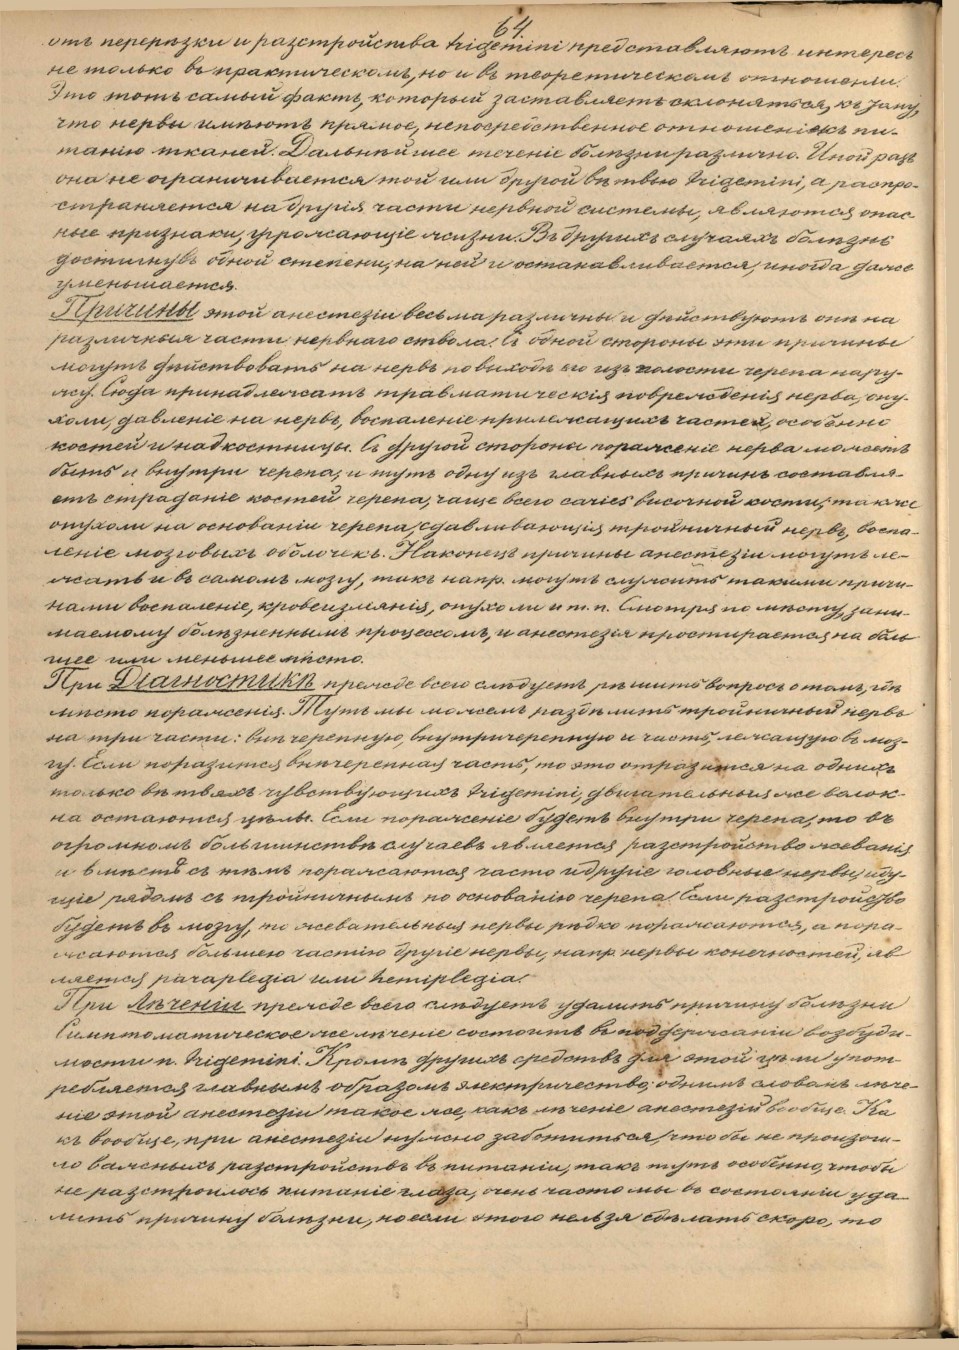 64.
отъ перерѣзки и разстройства trigemini представляютъ интересъ
не только въ практическомъ, но и въ теоретическомъ отношеніи.
Это тотъ самый фактъ, который заставляетъ склоняться къ тому,
что нервы имѣютъ прямое, непосредственное отношеніе къ пи-
танію тканей. Дальнѣйшее теченіе болѣзни различно. Иной разъ
она не ограничивается той или другой вѣтвью trigemini, а распро-
страняется на другія части нервной системы, являются опас
ные признаки, угрожающіе жизни. Въ другихъ случаяхъ болѣзнь
достигнувъ одной степени, на ней и останавливается, иногда даже
уменьшается.
Причины этой анестезіи весьма различны и дѣйствуютъ онѣ на
различныя части нервнаго ствола. Съ одной стороны эти причины
могутъ дѣйствовать на нервъ по выходѣ его изъ полости черепа нару-
жу. Сюда принадлежатъ травматическія поврежденія нерва, опу-
холи, давленіе на нервъ, воспаленіе прилежащихъ частей, особенно
костей и надкостницы. Съ другой стороны пораженіе нерва можетъ
быть и внутри черепа, и тутъ одну изъ главныхъ причинъ составля-
етъ страданіе костей черепа, чаще всего caries височной кости, также
опухоли на основаніи черепа, сдавливающія тройничный нервъ, воспа-
леніе мозговыхъ оболочекъ. Наконецъ причины анестезіи могутъ ле-
жать и въ самомъ мозгу, такъ напр. могутъ служить такими причи-
нами воспаленіе, кровеизліянія, опухоли и т. п. Смотря по мѣсту, зани-
маемому болѣзненнымъ процессомъ, и анестезія простирается на боль
шее или меньшее мѣсто.
При Діагностикѣ прежде всего слѣдуетъ рѣшить вопросъ о томъ, гдѣ
мѣсто пораженія. Тутъ мы можемъ раздѣлить тройничный нервъ
на три части: внѣчерепную, внутричерепную и часть, лежащую въ моз-
гу. Если поразится внѣчерепная часть, то это отразится на однихъ
только вѣтвяхъ чувствующихъ trigemini, двигательныя же волок-
на остаются цѣлы. Если пораженіе будетъ внутри черепа, то въ
огромномъ большинствѣ случаевъ является разстройство жеванія
и вмѣстѣ съ тѣмъ поражаются часто и другіе головные нервы, иду-
щіе рядомъ съ тройничнымъ по основанію черепа. Если разстройство
будетъ въ мозгу, то жевательныя нервы рѣдко поражаются, а пора-
жаются большею частію другіе нервы, напр. нервы конечностей, яв
ляется paraplegia или hemiplegia.
При Лѣченіи прежде всего слѣдуетъ удалить причину болѣзни
Симптоматическое же лѣченіе состоитъ въ поддержаніи возбуди-
мости n. trigemini. Кромѣ другихъ средствъ для этой цѣли упот-
ребляется главнымъ образомъ электричество; однимъ словомъ лѣче-
ніе этой анестезіи такое же, какъ лѣченіе анестезій вообще. Ка
къ вообще, при анестезіи нужно заботиться, чтобы не произош-
ло важныхъ разстройствъ въ питаніи, такъ тутъ особенно, чтобы
не разстроилось питаніе глаза, очень часто мы въ состояніи уда-
лить причину болѣзни, но если этого нельзя сдѣлать скоро, то